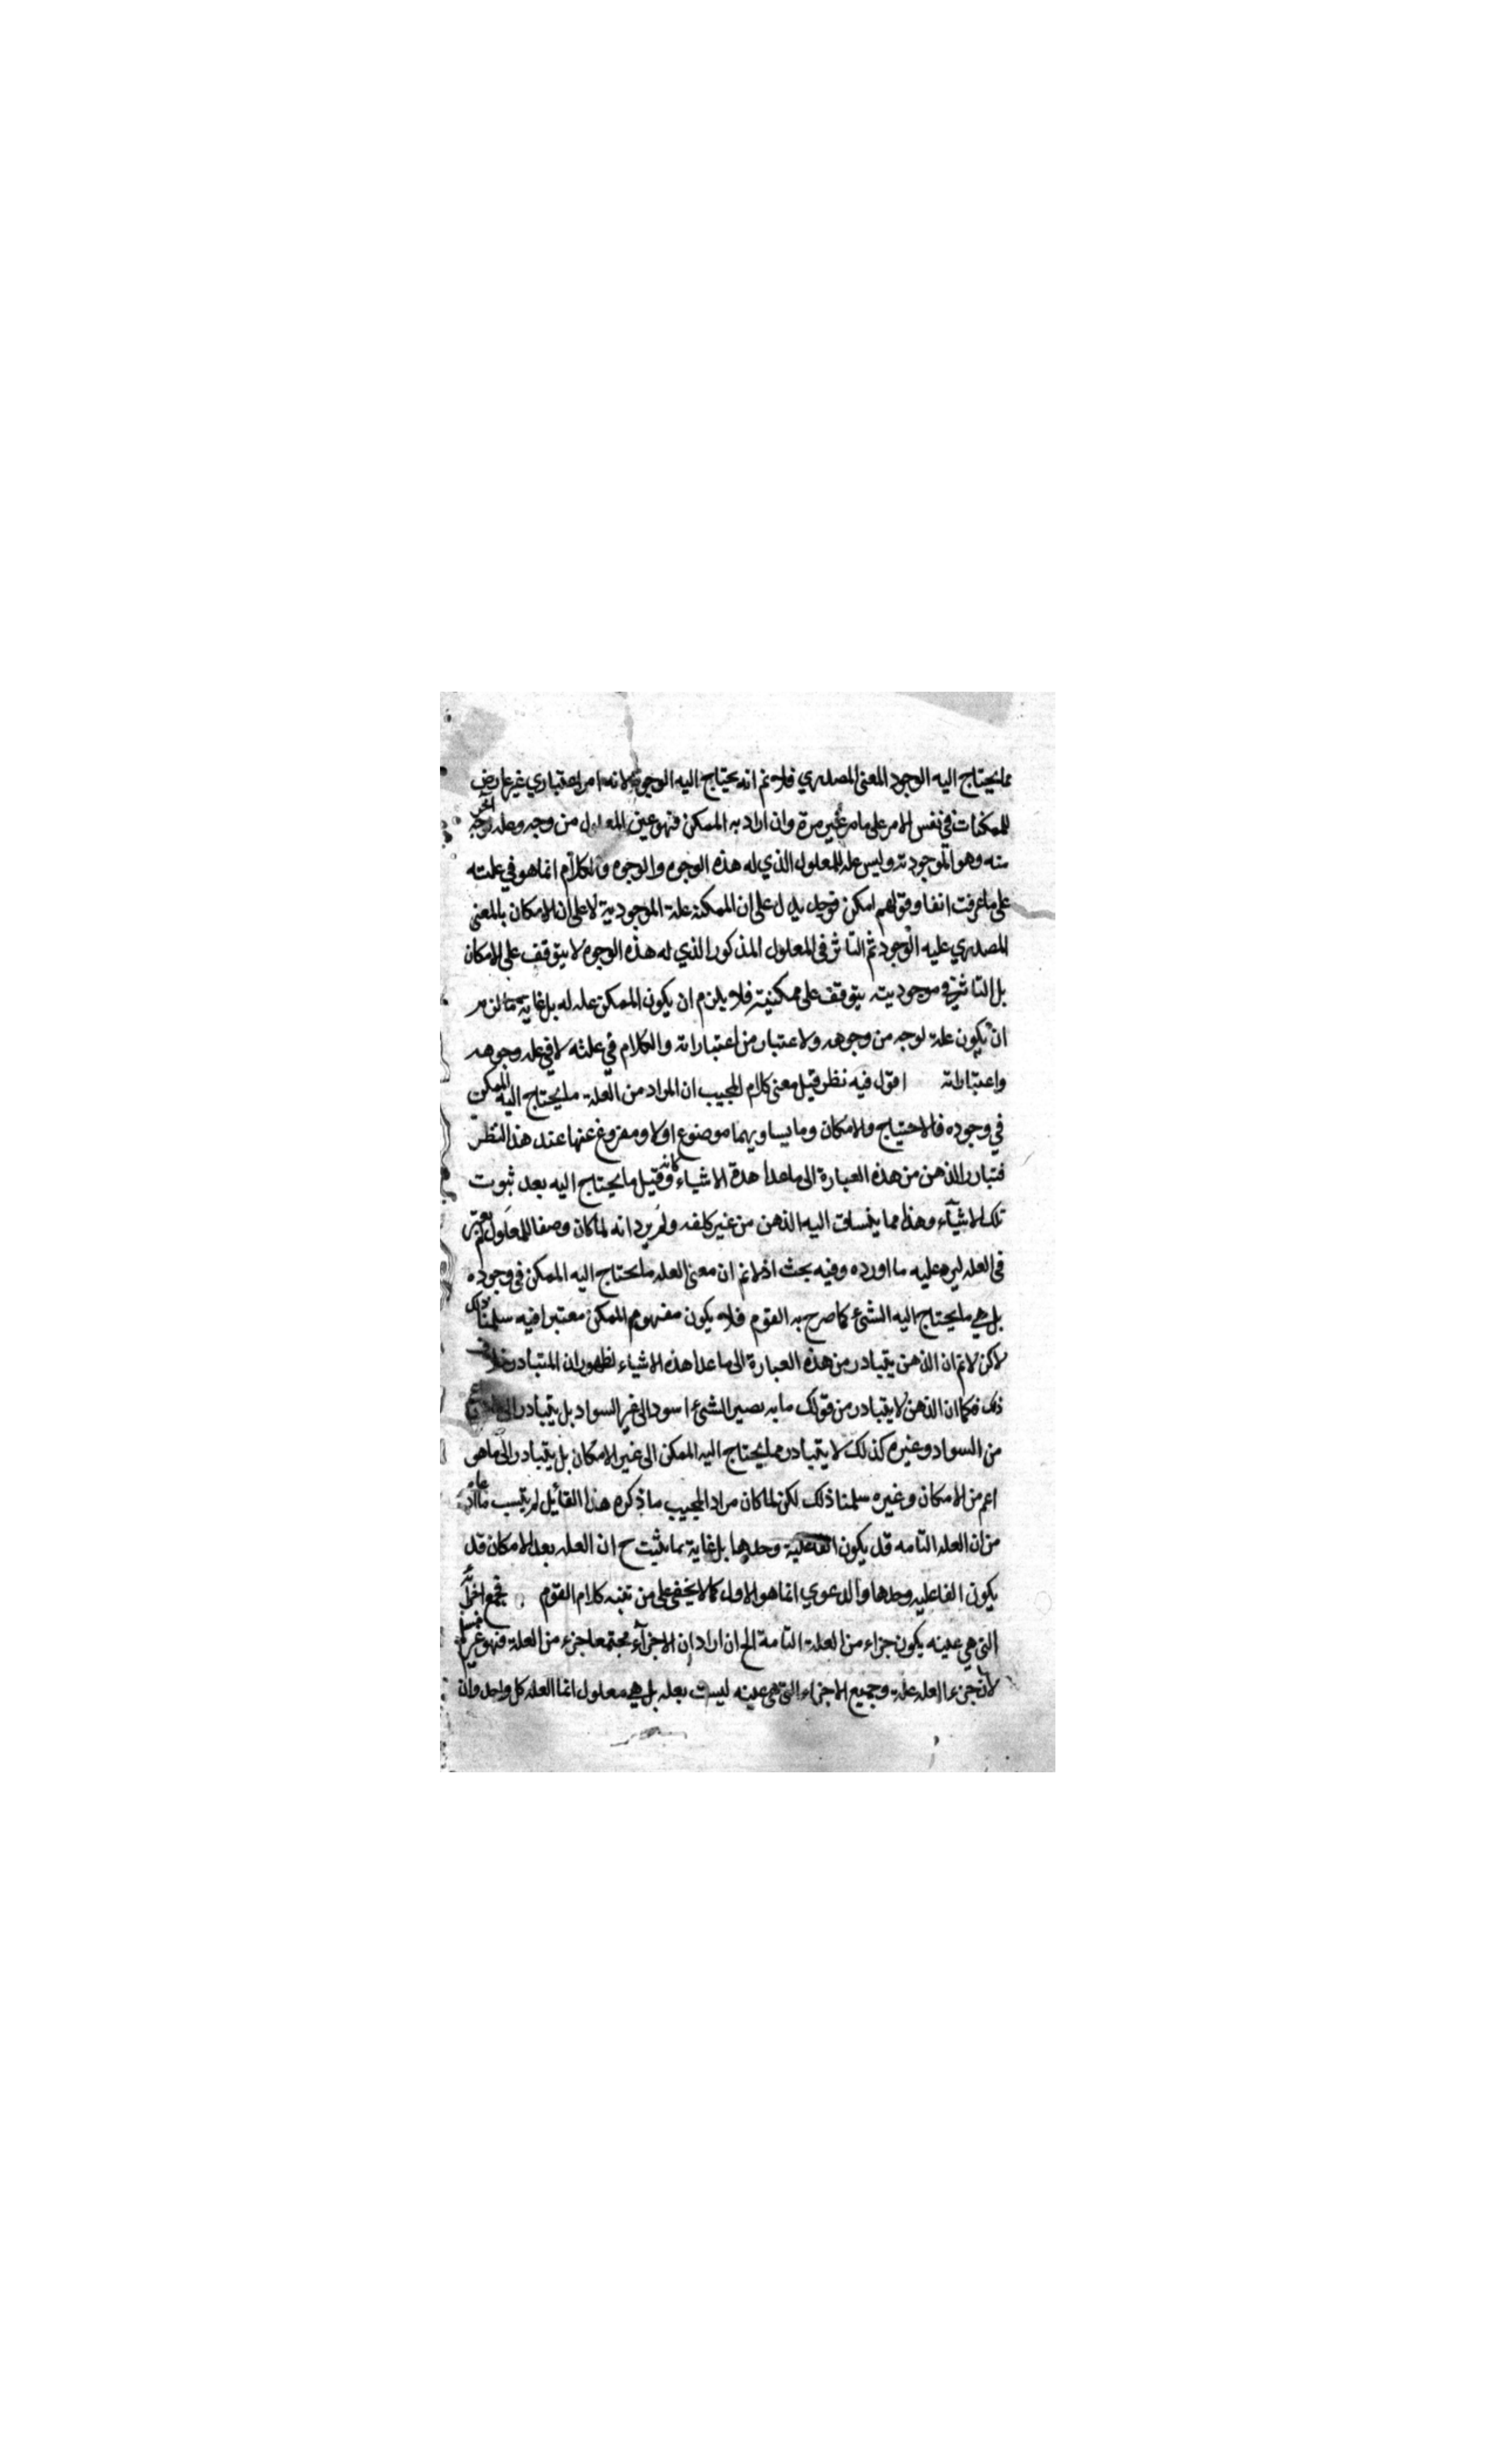 مما يحتاج اليه الوجود المعنى المصدري فلانم انه يحتاج اليه الوجود لانه امر اعتباري غير عارض
للممكنات في نفس الامر على ما مر غير مرة وان اراد به الممكن فهو عين المعلول من وجه وعله لوجه آخر
منه وهو الموجودية وليس عله للمعلول الذي له هذه الوجوه والوجوه والكلام انما هو في علته
على ما عرفت انفا وقولهم امكن فوجد يدل على ان الممكنه علة الموجودية لا على ان الامكان بالمعنى
المصدري عليه الوجود ثم التاثر في المعلول المذكور الذي له هذه الوجوه لا يتوقف على الامكان
بل التاثير في موجوديته يتوقف على ممكنيته فلا يلزم ان يكون الممكن عله له بل غاية ما لزم
ان يكون علة لوجه من وجوهه ولاعتبار من اعتباراته والكلام في علته لا في عله وجوهه
واعتباراته اقول فيه نظر قيل معنى كلام المجيب ان المراد من العلة ما يحتاج اليه الممكن
في وجوده فالاحتياج والامكان وما يساويهما موضوع اولا ومفروغ عنها عند هذا النظر
فتبادر الذهن من هذه العبارة الى ما عدا هذة الاشياء وكانه قيل ما يحتاج اليه بعد ثبوت
تلك الاشيآء وهذا مما ينساق اليه الذهن من غير كلفه ولم يرد انه لما كان وصفا للمعلول لم يعتبر
في العله ليرد عليه ما اورده وفيه بحث اذ لا نم ان معنى العله ما يحتاج اليه الممكن في وجوده
بل هي ما يحتاج اليه الشئ كما صرح به القوم فلا يكون مفهوم الممكن معتبرا فيه سلمنا ذلك
لاكن لا نم ان الذهن يتبادر من هذه العبارة الى ما عدا هذه الاشياء لظهور ان المتبادر خلاف
ذلك فكما ان الذهن لا يتبادر من قولك ما به يصير الشئ اسود الى غير السواد بل يتبادر الى
من السواد وغيره كذلك لا يتبادر مما يحتاج اليه الممكن الى غير الامكان بل يتبادر الى ما هي
اعم من الامكان وغيره سلمنا ذلك لكن لما كان مراد المجيب ما ذكره هذا القائيل لم يثبت ما ادعاه
من ان العله التامه قد يكون الفاعلية وحدها بل غاية ما يثبت ح ان العله بعد الامكان قد
يكون الفاعليه وحدها والدعوي انما هو الاول كما لا يخفى على من تتبه كلام القوم فجمع اجزائه
التي هي عينه يكون جزاء من العلة التامة الخ ان اراد ان الاجزآء مجتمعا جزء من العلة فهو غير مسلم
لان جزء العله علة وجميع الاجزاء التي هي عينه ليست بعله بل هي معلول انما العله كل واحد وان